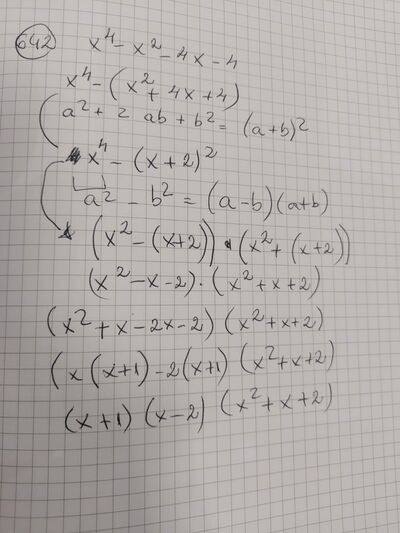 642
x⁴ - x² - 4x - 4
x⁴ - (x² + 4x + 4)
a² + 2 ab + b² = (a+b)²
x⁴ - (x + 2)²
a² - b² = (a-b)(a+b)
(x² - (x+2)) · (x² + (x+2))
(x² - x - 2) · (x² + x + 2)
(x² + x - 2x - 2) (x² + x + 2)
(x (x+1) - 2(x+1) (x² + x + 2)
(x + 1) (x - 2) (x² + x + 2)